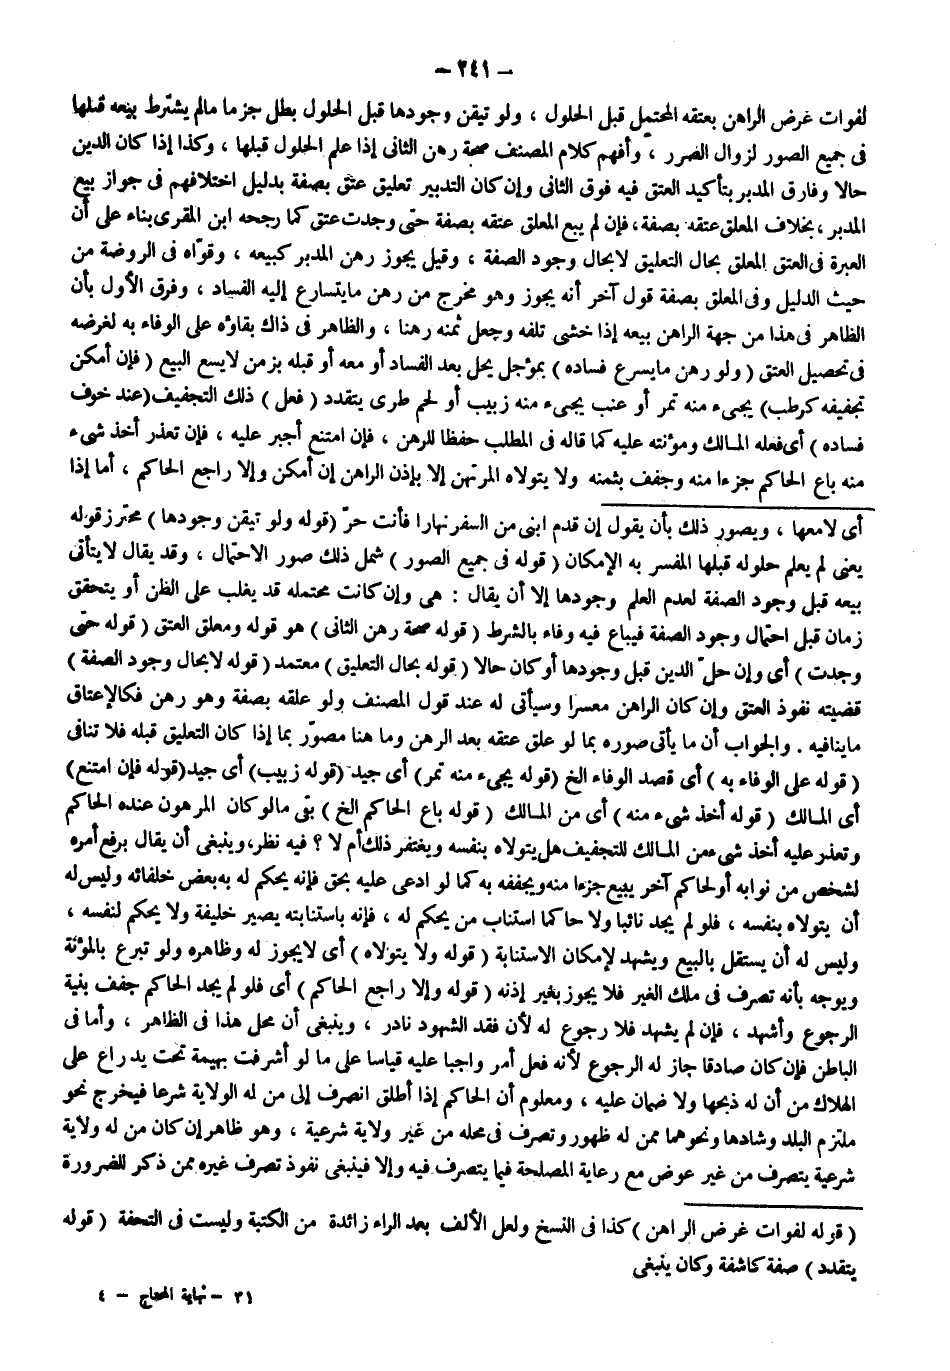 – ٢٤١ –
لفوات غرض الراهن بعتقه المحتمل قبل الحلول ، ولو تيقن وجودها قبل الحلول بطل جزما مالم يشترط بيعه قبلها
فى جميع الصور لزوال الضرر ، وأفهم كلام المصنف صحة رهن الثانى إذا علم الحلول قبلها ، وكذا إذا كان الدين
حالا وفارق المدبر بتأكيد العتق فيه فوق الثانى وإن كان التدبير تعليق عتق بصفة بدليل اختلافهم فى جواز بيع
المدبر ، بخلاف المعلق عتقه بصفة، فإن لم يبع المعلق عتقه بصفة حتى وجدت عتق كما رجحه ابن المقرى بناء على أن
العبرة فى العتق المعلق بحال التعليق لابحال وجود الصفة ، وقيل يجوز رهن المدبر كبيعه ، وقوّاه فى الروضة من
حيث الدليل وفى المعلق بصفة قول آخر أنه يجوز وهو مخرج من رهن مايتسارع إليه الفساد ، وفرق الأول بأن
الظاهر فى هذا من جهة الراهن بيعه إذا خشى تلفه وجعل ثمنه رهنا ، والظاهر فى ذاك بقاؤه على الوفاء به لغرضه
فى تحصيل العتق ( ولو رهن مايسرع فساده ) بمؤجل يحل بعد الفساد أو معه أو قبله بزمن لايسع البيع ( فإن أمكن
تجفيفه كرطب) يجىء منه تمر أو عنب يجىء منه زبيب أو لحم طرى يتقدد ( فعل ) ذلك التجفيف (عند خوف
فساده ) أى فعله المالك ومؤنته عليه كما قاله فى المطلب حفظا للرهن ، فإن امتنع أجبر عليه ، فإن تعذر أخذ شىء
منه باع الحاكم جزءا منه وجفف بثمنه ولا يتولاه المرتهن إلا بإذن الراهن إن أمكن وإلا راجع الحاكم ، أما إذا
أى لامعها ، ويصور ذلك بأن يقول إن قدم ابنى من السفر نهارا فأنت حرّ (قوله ولو تيقن وجودها ) محترز قوله
يعنى لم يعلم حلوله قبلها المفسر به الإمكان ( قوله فى جميع الصور ) شمل ذلك صور الاحتمال ، وقد يقال لايتأتى
بيعه قبل وجود الصفة لعدم العلم وجودها إلا أن يقال : هى وإن كانت محتملة قد يغلب على الظن أو يتحقق
زمان قبل احتمال وجود الصفة فيباع فيه وفاء بالشرط ( قوله صحة رهن الثانى ) هو قوله ومعلق العتق ( قوله حتى
وجدت ) أى وإن حلّ الدين قبل وجودها أو كان حالا ( قوله بحال التعليق ) معتمد ( قوله لابحال وجود الصفة )
قضيته نفوذ العتق وإن كان الراهن معسرا وسيأتى له عند قول المصنف ولو علقه بصفة وهو رهن فكالإعتاق
ماينافيه . والجواب أن ما يأتى صوره بما لو علق عتقه بعد الرهن وما هنا مصوّر بما إذا كان التعليق قبله فلا تنافى
( قوله على الوفاء به ) أى قصد الوفاء الخ (قوله يجىء منه تمر) أى جيد (قوله زبيب) أى جيد (قوله فإن امتنع)
أى المالك ( قوله أخذ شىء منه ) أى من المالك ( قوله باع الحاكم الخ ) بقى مالو كان المرهون عنده الحاكم
وتعذر عليه أخذ شىء من المالك للتجفيف هل يتولاه بنفسه ويغتفر ذلك أم لا ؟ فيه نظر، وينبغى أن يقال برفع أمره
لشخص من نوابه أو لحاكم آخر يبيع جزءا منه ويجففه به كما لو ادعى عليه بحق فإنه يحكم له به بعض خلفائه وليس له
أن يتولاه بنفسه ، فلو لم يجد نائبا ولا حاكما استناب من يحكم له ، فإنه باستنابته يصير خليفة ولا يحكم لنفسه ،
وليس له أن يستقل بالبيع ويشهد لإمكان الاستنابة ( قوله ولا يتولاه ) أى لايجوز له وظاهره ولو تبرع بالمؤنة
ويوجه بأنه تصرف فى ملك الغير فلا يجوز بغير إذنه ( قوله وإلا راجع الحاكم ) أى فلو لم يجد الحاكم جفف بنية
الرجوع وأشهد ، فإن لم يشهد فلا رجوع له لأن فقد الشهود نادر ، وينبغى أن محل هذا فى الظاهر ، وأما فى
الباطن فإن كان صادقا جاز له الرجوع لأنه فعل أمر واجبا عليه قياسا على ما لو أشرفت بهيمة تحت يد راع على
الهلاك من أن له ذبحها ولا ضمان عليه ، ومعلوم أن الحاكم إذا أطلق انصرف إلى من له الولاية شرعا فيخرج نحو
ملتزم البلد وشادها ونحوهما ممن له ظهور وتصرف فى محله من غير ولاية شرعية ، وهو ظاهر إن كان من له ولاية
شرعية يتصرف من غير عوض مع رعاية المصلحة فيما يتصرف فيه وإلا فينبغى نفوذ تصرف غيره ممن ذكر للضرورة
( قوله لفوات غرض الراهن ) كذا فى النسخ ولعل الألف بعد الراء زائدة من الكتبة وليست فى التحفة ( قوله
يتقدد ) صفة كاشفة وكان ينبغى
٣١ – نهاية المحتاج – ٤